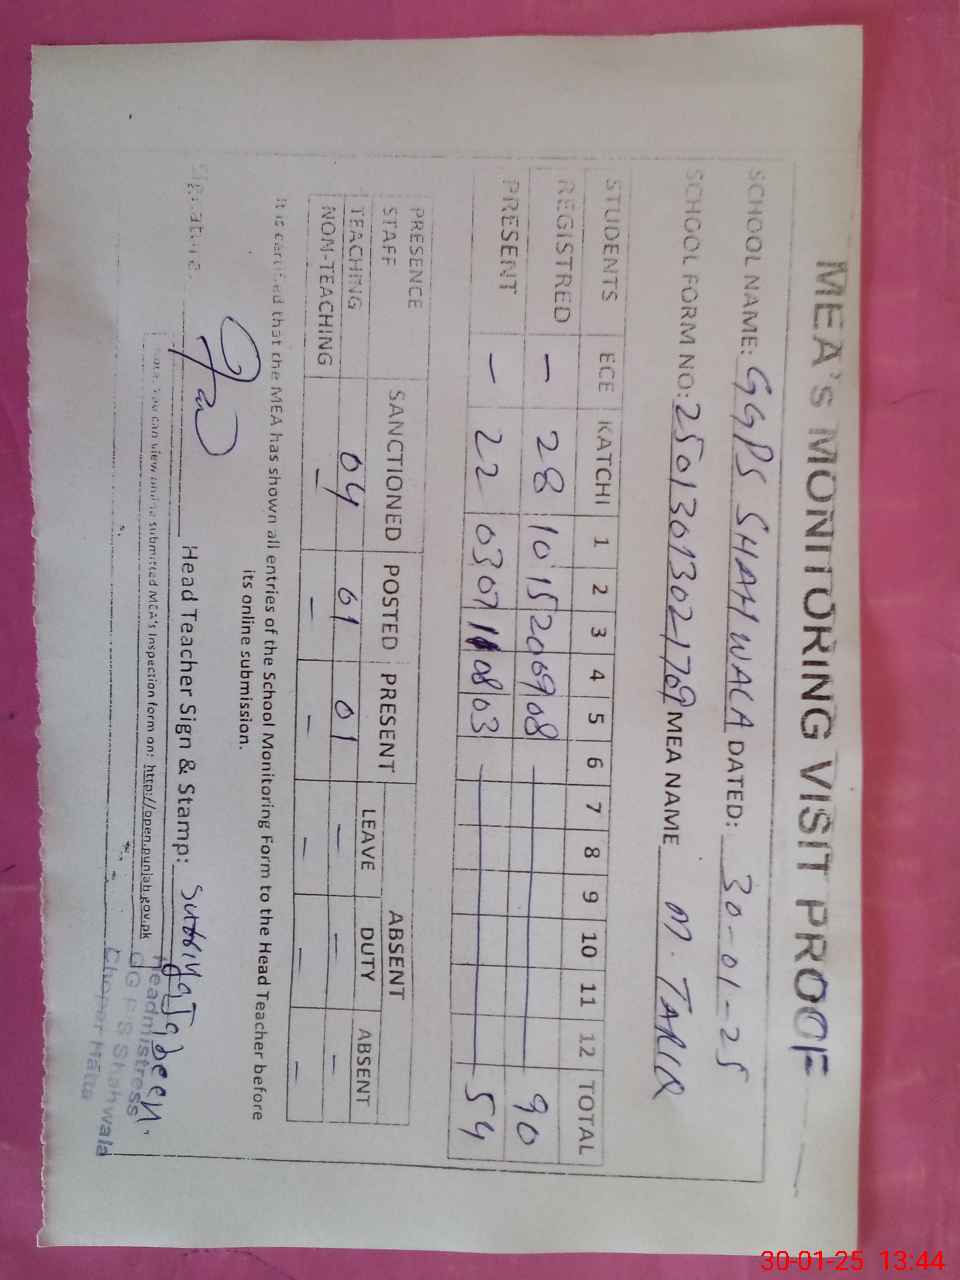 MEA'S MONITORING VISIT PROOF
SCHOOL NAME: GGPS SHAHWALA DATED: 30-01-25
SCHOOL FORM NO: 25013013021709 MEA NAME M. TARIQ
STUDENTS ECE KATCHI 1 2 3 4 5 6 7 8 9 10 11 12 TOTAL
REGISTRED — 28 10 15 20 09 08 90
PRESENT — 22 03 07 11 08 03 54
PRESENCE STAFF SANCTIONED POSTED PRESENT ABSENT
LEAVE DUTY ABSENT
TEACHING 04 01 01 — — —
NOM-TEACHING — — — — — —
It is certified that the MEA has shown all entries of the School Monitoring Form to the Head Teacher before
its online submission.
Signature Head Teacher Sign & Stamp: Jabeen.
Note: You can view online submitted MEA's Inspection form on: http://open.punjab.gov.pk
Headmistress
GG P S Shahwala
30-01-25 13:44